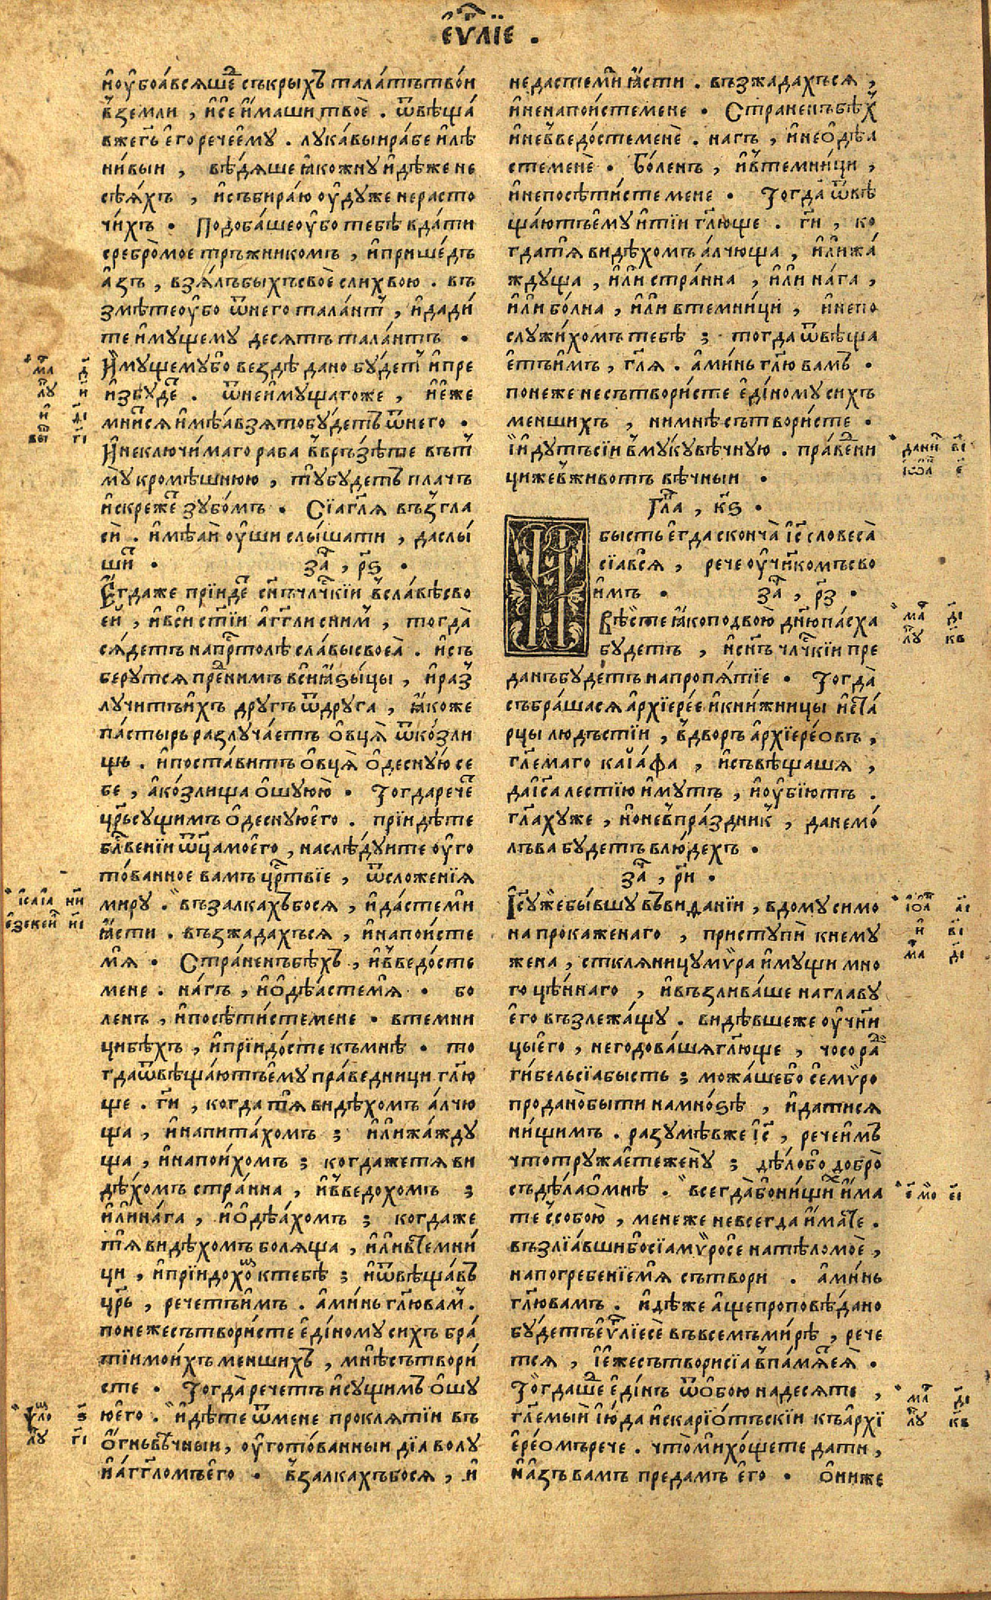 є҆ѵⷢ҇лїе .
и҆оу҆боа́всяшⷣе съкрыхъ тала́нтътво́и
вⸯземли , и҆се и҆́маши твоѐ . ѿвѣща́
вжегⷭ҇ь е҆го речеє҆му . лука́выирабе и҆лѣ
ни́выи , вѣ́дяше ꙗ҆́кожну и҆дѣ́же не
сѣ́яхъ , и҆събира́ю оу҆́дуже нерасто
чи́хъ . Подоба́шеоу҆́бо тебѣ̀ вда́ти
сребро̀мое тръжникомъ , и҆прише́дъ
а҆́зъ , взя́лъбыхъсвоѐ слихвою . въ
змѣ́теоу҆бо ѿнего тала́нтъ , и҆дади́
те и҆му́щему десять тала́нтъ .
И҆мущемубо вездѣ̀ дано бу́детъ и҆пре
и҆збу́деⷮ . ѿнеи҆му́щагоже , и҆е҆́же
мни́тся и҆мѣ́а взятобу́детъ ѿнего .
И҆неключи́маго раба̀ вⸯвръзѣ́те въть
му́ кромѣ́шнюю , ту́будетъ пла́чь
и҆скре́жеⷮ зубо́мъ . Сїа́гл҃я възгла
сѝ . и҆мѣ́аи оу҆́ши слы́шати , даслы́
ши . заⷱ҇ , р҃ѕ .
Є҆гдаже прїи́деⷮ сн҃ъчл҃чⷭ҇кїи вⸯсла́вѣсво
е҆́й , и҆вси ст҃їи а҆́гг҃лиснимⸯ , тогда̀
ся́детъ напрⷭ҇то́лѣ сла́высвоеа̀ . и҆съ
беру́тся преⷣни́мъ вси ꙗ҆зы́цы , и҆раз̾
лучи́тъи҆хъ дру́гъ ѿдру́га , ꙗ҆́коже
па́стырь разлуча́етъ ѻ҆́вця ѿко́зли
щь . и҆поста́витъ ѻ҆́вця ѻ҆десну́ю се
бе , а҆ко́злища ѻ҆шу́юю . Тогда́речеⷮ
цр҃ьсу́щимъ ѻ҆деснуюе҆го . прїидѣ́те
бл҃ве́нїи ѿц҃а мое҆го , наслѣ́дуите оу҆го
то́ванное вамъ црⷭ҇твїе , ѿсложенїя
миру . възалка́хъбося , и҆да́стеми
ꙗ҆́сти . възжада́хъся , и҆напои́сте
мя̀ . Стра́ненъбѣхъ , и҆вⸯведо́сте
мене . на́гъ , и҆ѻ҆дѣ́астемя . бо
ленъ , и҆посѣти́стемене . втемни
цибѣ́хъ , и҆прїидо́сте къмнѣ̀ . то
гдаѿвѣща́ютъе҆му пра́ведници гл҃ю
ще . гⷭ҇и , когда тя̀ видѣ́хомъ а҆́лчю
ща , и҆напита́хомъ ; и҆лижа́жду
ща , и҆напои́хомъ ; когдажетя ви
дѣ́хомъ стра́нна , и҆вⸯведохомъ ;
и҆лина́га , и҆ѻ҆дѣ́ахомъ ; когдаже
тя̀ видѣ́хомъ боляща , и҆ливтемни́
ци , и҆прїидохоⷨ ктебѣ̀ ; и҆ѿвѣща́въ
цр҃ь , речетъи҆мъ . а҆ми́нь гл҃ювамⸯ .
понежесътвори́сте є҆ди́ному сихъ бра́
тїимои́хъ ме́ншихъ , мнѣ̀сътвори́
сте . Тогда̀ речетъ и҆су́щимъ ѻ҆шу
юе҆го . и҆дѣ́те ѿмене прокля́тїи въ
ѻ҆́гньвѣ́чныи , оу҆гото́ванныи дїа́волу
и҆а҆́гг҃ломъе҆го . вⸯзалка́хъбося , и҆
недастемѝ ꙗ҆́сти . възжада́хъся ,
и҆ненапои́стемене . Стра́ненъбѣ́хъ
и҆невⸯведо́стеменѐ . на́гъ , и҆неѻ҆дѣ́а
стеменѐ . бо́ленъ , и҆втемни́ци ,
и҆непосѣти́сте мене . Тогда̀ ѿвѣ
ща́ютъе҆му и҆тїи гл҃юще . гⷭ҇и , ко
гдатя̀ видѣ́хомъ а҆́лчюща , и҆лижа́
ждуща , и҆ли стра́нна , и҆ли на́га ,
и҆ли бо́лна , и҆ли втемни́ци , и҆непо
служи́хомъ тебѣ̀ ; тогда ѿвѣща
е҆тъи҆мъ , гл҃я . а҆ми́нь гл҃ю вамъ .
понеже несътвори́сте є҆ди́ному сихъ
менших̾ , нимнѣ̀ сътвори́сте .
И҆и҆дутъсїи вⸯмукувѣ́чную . пра́веⷣни
цижевⸯживо́тъ вѣ́чныи .
Гл҃а , к҃ѕ .
И
бысть е҆гда сконча̀ і҆с҃ словеса̀
сїа́вся , рече оу҆чн҃комъ сво
и҆мъ . заⷱ҇ , р҃з .
вѣ́сте ꙗ҆́коподвою́ дн҃ю па́сха
бу́детъ , и҆сн҃ъ чл҃чⷭ҇кїи пре
да́нъбу́детъ напропя́тїе . Тогда̀
събра́шася а҆рхїере́е и҆кни́жницы и҆ста
рцы лю́дьстїи , вⸯдворъ а҆рхїере́овъ ,
гл҃емаго каїа҆́фа , и҆съвѣща́шя ,
даі҆с҃а ле́стїю и҆́мутъ , и҆оу҆бїю́тъ .
гл҃а́хуже , нони вⸯпра́здник̾ , данемо
лъва бу́детъ влю́дехъ .
заⷱ҇ , р҃и .
І҆с҃уже бы́вшу въви́данїи , вдому си́мо
на прокаже́наго , приступѝ кнему
жена , сткля́ницуми́ра и҆му́щи мно
гоцѣ́ннаго , и҆възлива́ше наглаву
е҆го възлежа́щу . ви́дѣвшеже оу҆чн҃и
цые҆го , негодова́шягл҃юще , чосораⷣ
ги́бельсїабысть ; мо́жа́шебо семѵ́ро
продано̀бы́ти намно́зѣ , и҆да́тися
ни́щимъ . разумѣвже і҆с҃ , речеи҆мъ
чтотружа́етежену ; дѣ́лобо добро̀
съдѣ́лаѻ҆мнѣ̀ . всегда́бони́щихъ и҆́ма
те ссобою , менеже невсегда и҆́мате .
възлїа́вши босїамѵ́росе натѣ́ломоѐ ,
напогребе́нїемя̀ сътвори . а҆ми́нь
гл҃ювамъ . и҆дѣ́же а҆́щепроповѣ́дано
бу́детъ є҆ѵⷢ҇лїесѐ въвсемъми́рѣ , рече
тся , і҆е҆́жесътворисїа вⸯпа́мятьея̀ .
Тогда́шеⷣ є҆ди́нъ ѿѻ҆бою на́десяте ,
гл҃емый і҆ю҆́да и҆скарїѻ́тьскїи къа҆рхї
е҆ре́омърече . что́мѝхо́щете да́ти ,
и҆а҆́зъ вамъ преда́мъ е҆го . ѻ҆ни́же